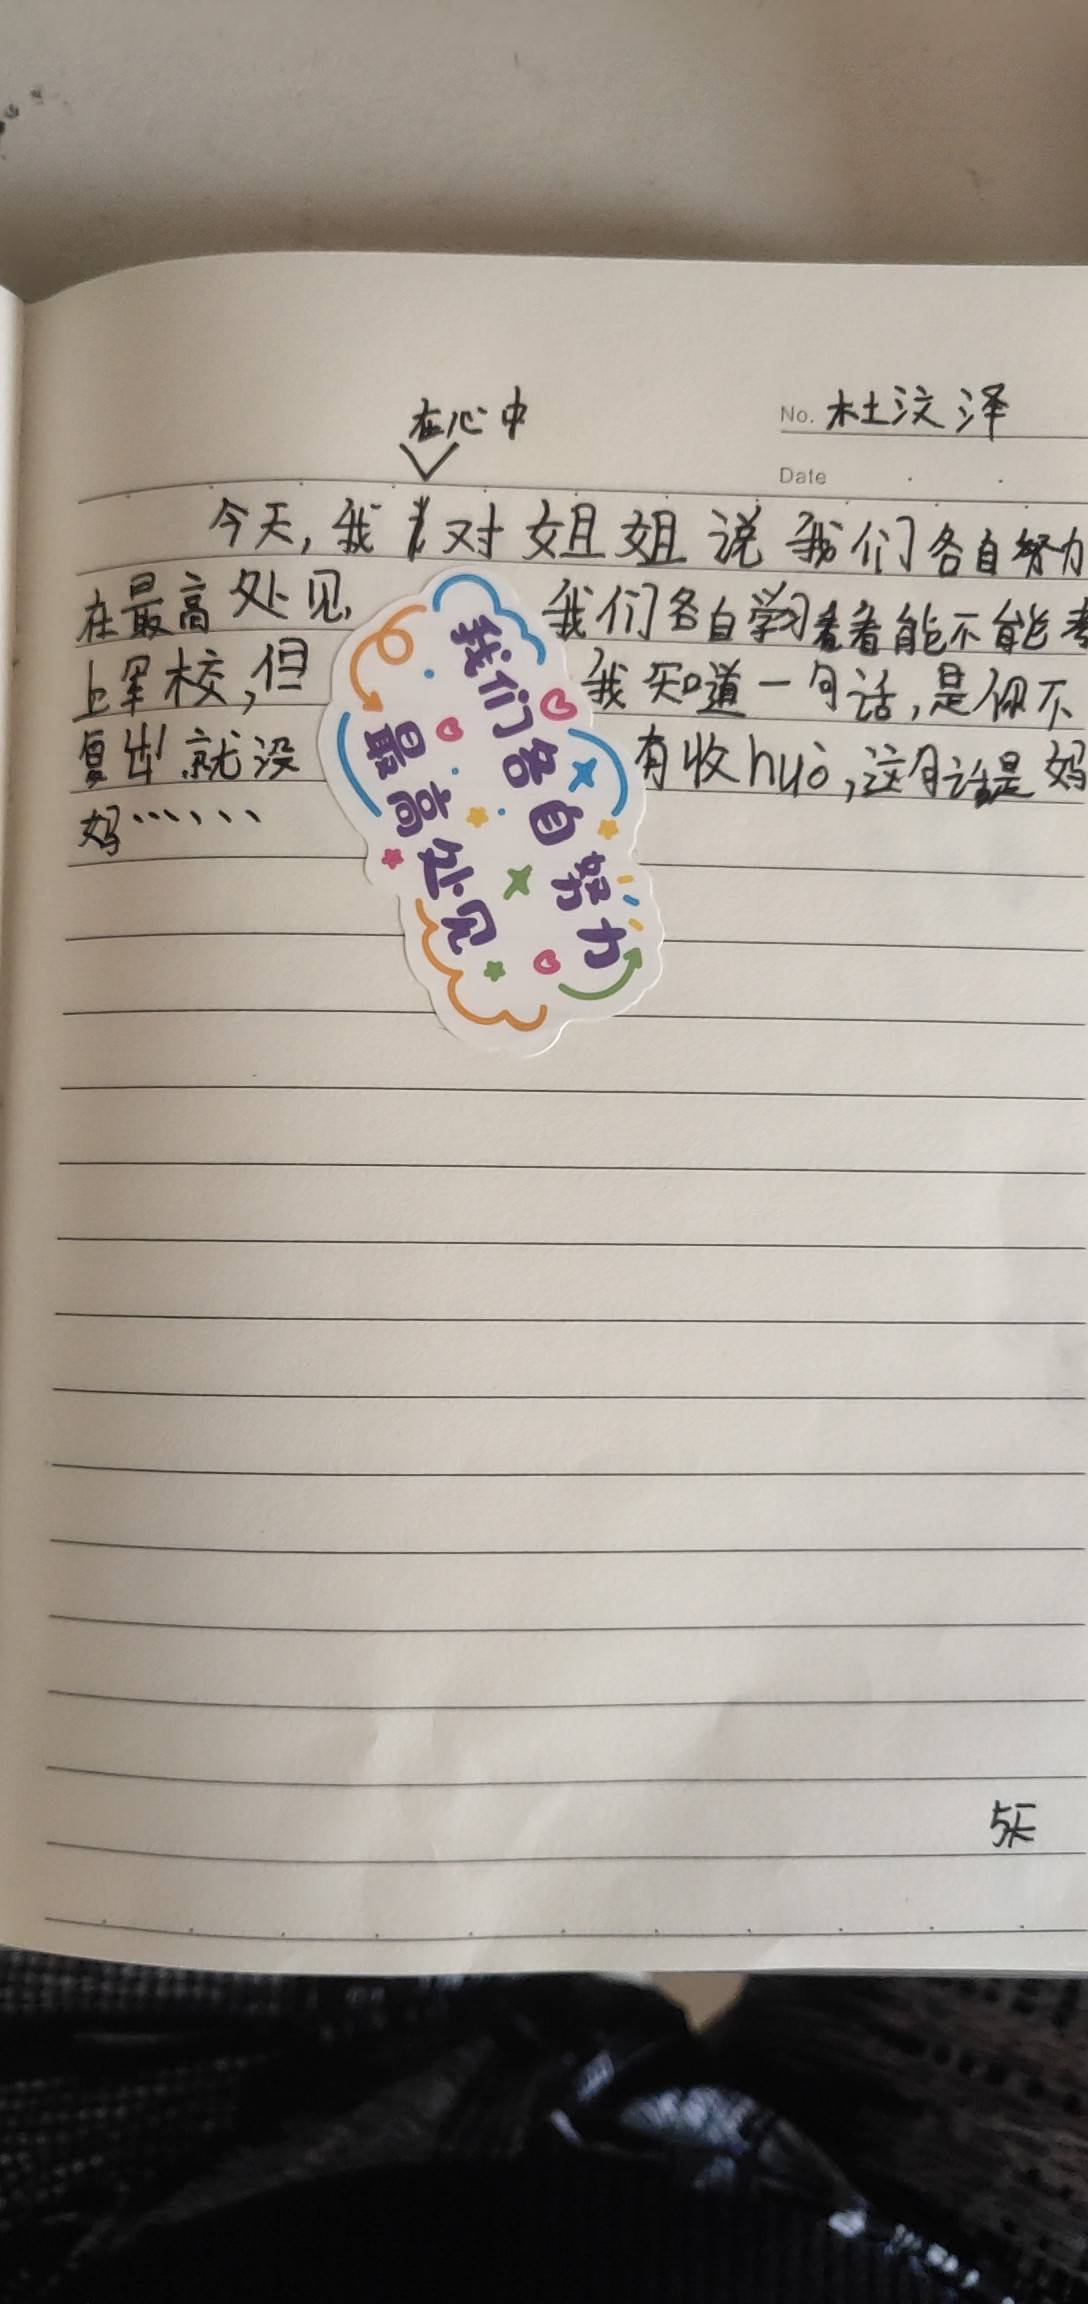 No. 杜汶泽
Date
在心中
今天,我对姐姐说我们各自努力
在最高处见 我们各自学习看看能不能考
上军校,但 我知道一句话,是你不
复出就没 有收huò,这句话是妈
妈……
我们各自努力
最高处见
5天